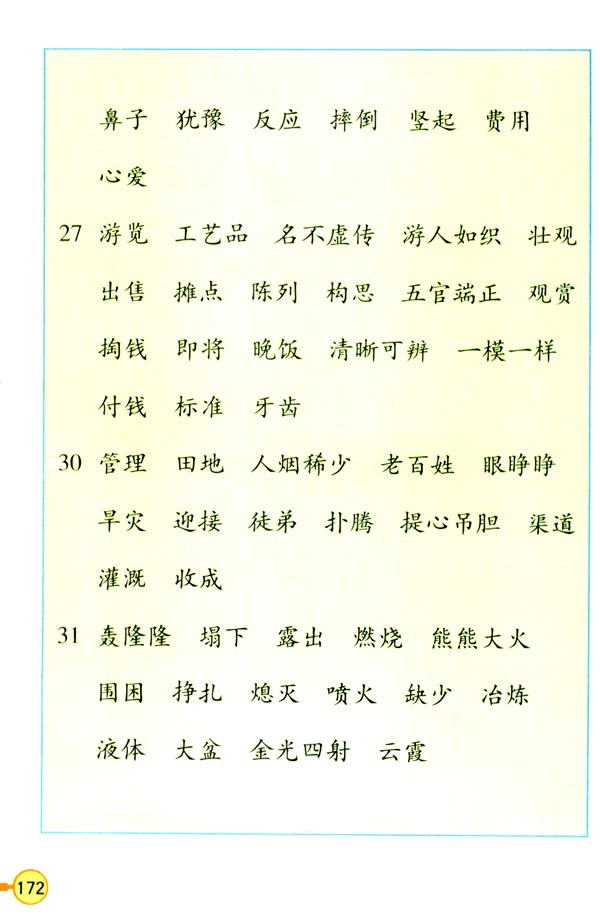 鼻子 犹豫 反应 摔倒 竖起 费用
心爱
27 游览 工艺品 名不虚传 游人如织 壮观
出售 摊点 陈列 构思 五官端正 观赏
掏钱 即将 晚饭 清晰可辨 一模一样
付钱 标准 牙齿
30 管理 田地 人烟稀少 老百姓 眼睁睁
旱灾 迎接 徒弟 扑腾 提心吊胆 渠道
灌溉 收成
31 轰隆隆 塌下 露出 燃烧 熊熊大火
围困 挣扎 熄灭 喷火 缺少 冶炼
液体 大盆 金光四射 云霞
172